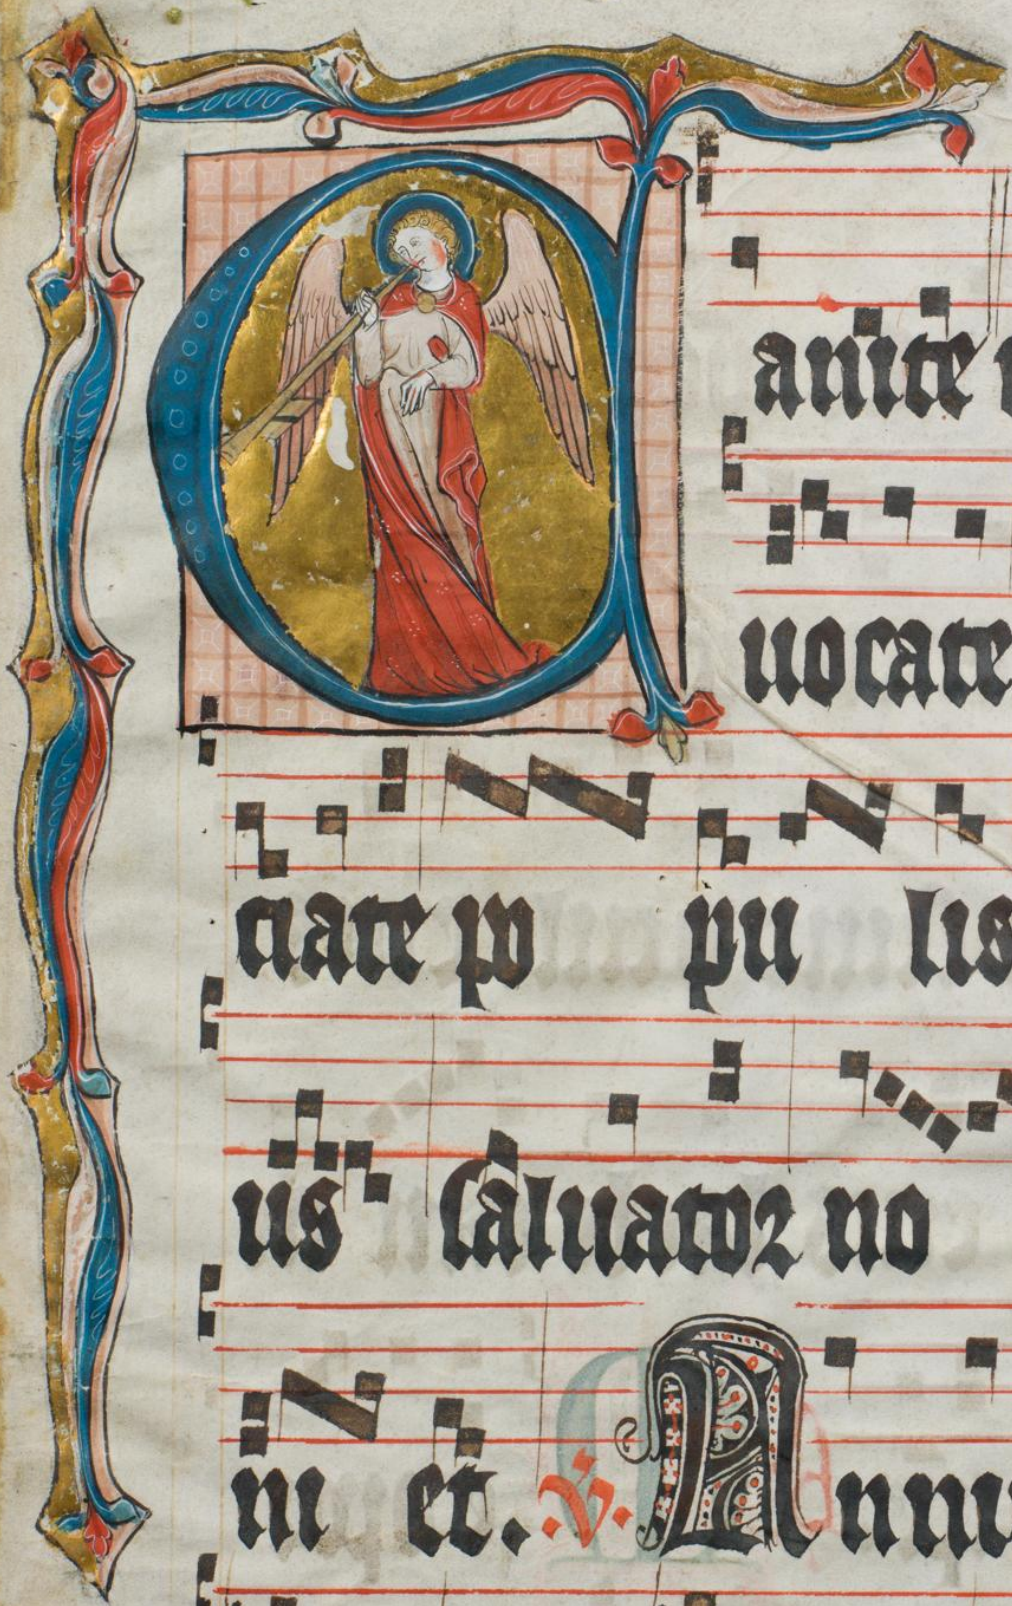 Canite
uocate
ciate po pu lis
us saluator no
ni et. ℣. Annu